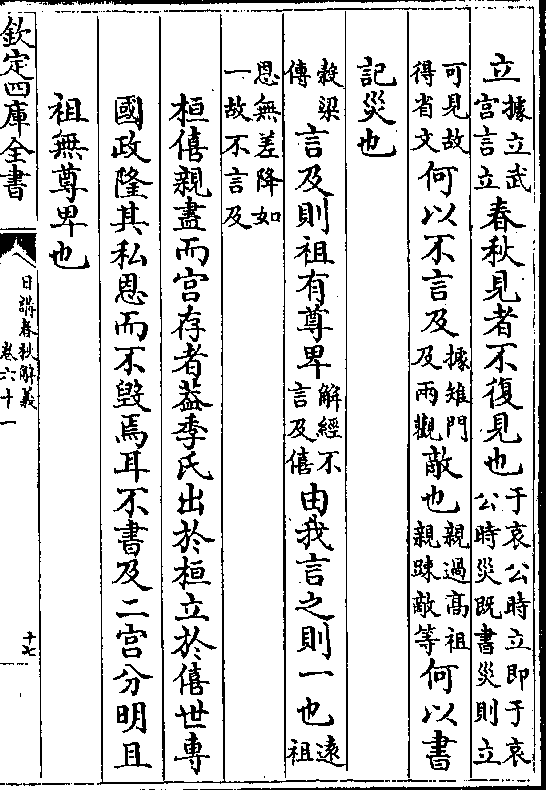 立據立武宮言立春秋見者不復見也于哀公時立即于哀公時災既書災則立
可見故得省文何以不言及據雉門及兩觀敵也親過高祖親踈敵等何以書
記災也
穀梁傳言及則祖有尊卑解經不言及僖由我言之則一也遠祖
恩無差降如一故不言及
桓僖親盡而宫存者葢季氏出於桓立於僖世專
國政隆其私恩而不毀焉耳不書及二宫分明且
祖無尊卑也
欽定四庫全書
日講春秋解義
卷六十一
十七